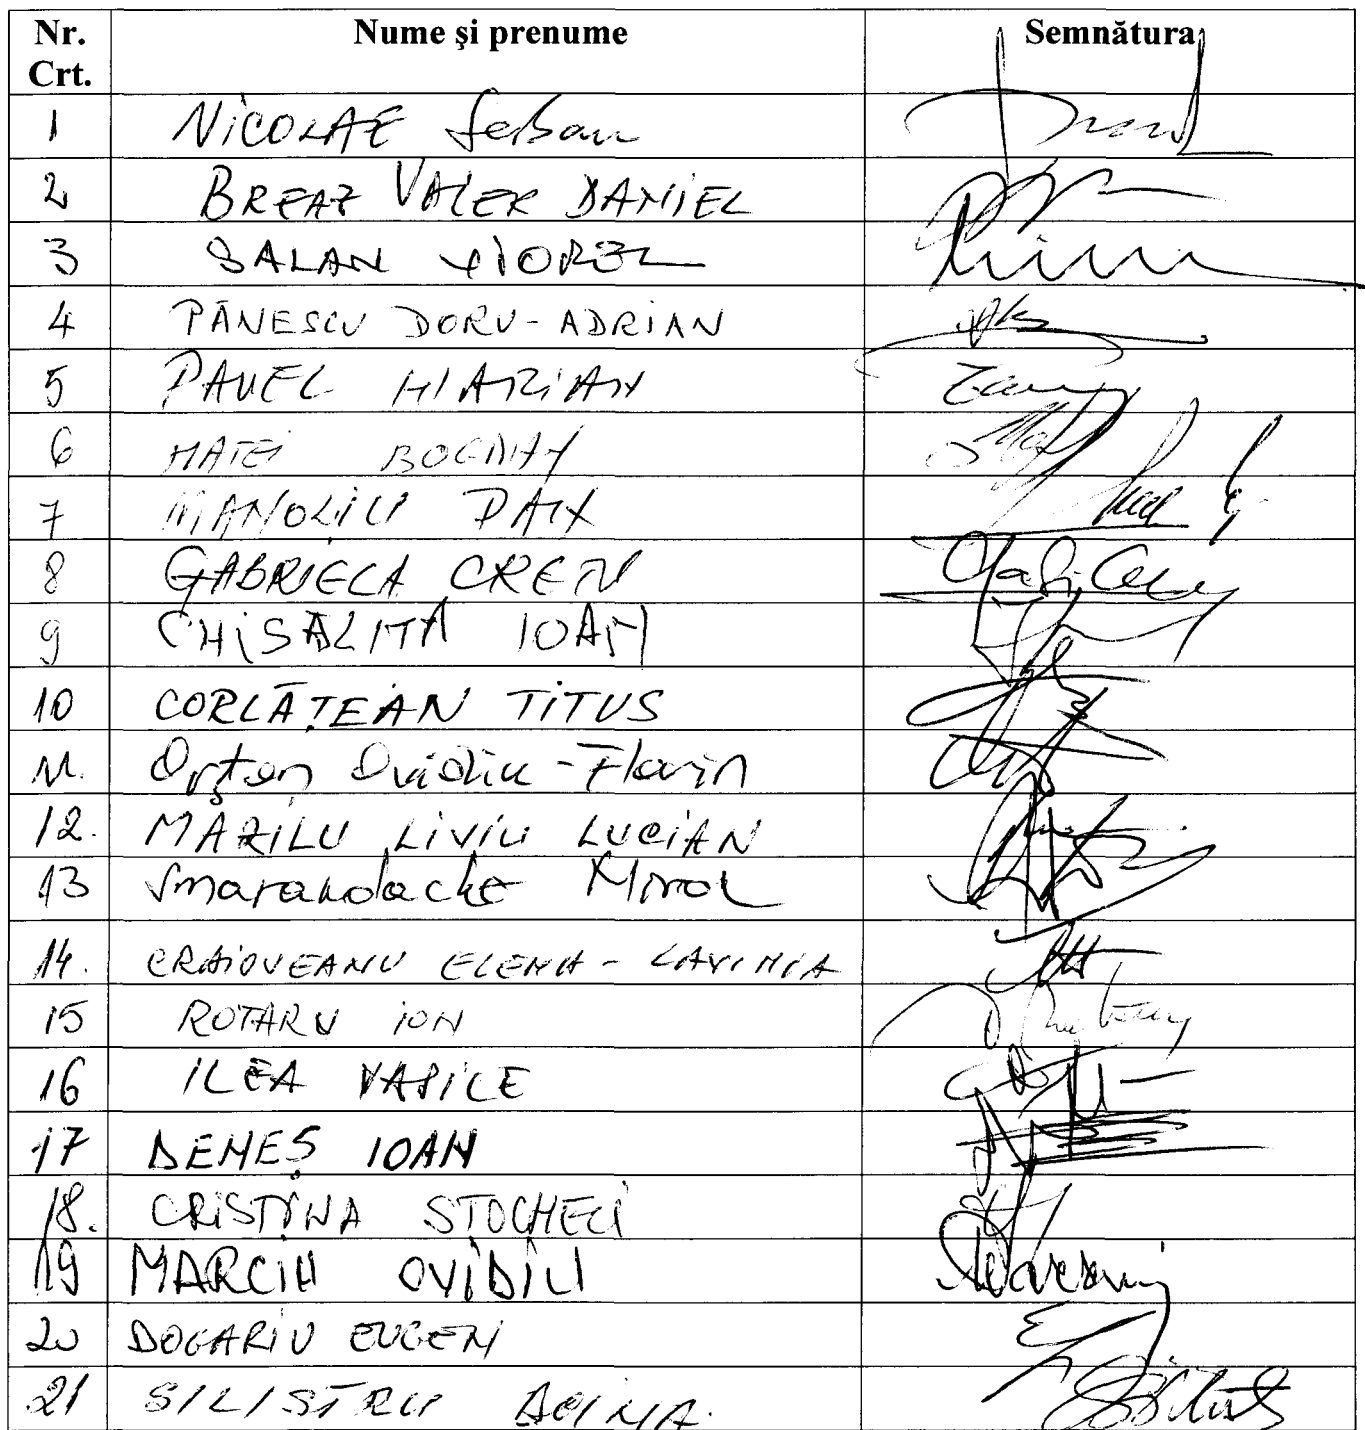 Nr. Crt. Nume și prenume Semnătura
1 NICOLAE Serban
2 BREAZ VALER DANIEL
3 SALAN VIOREL
4 PĂNESCU DORU-ADRIAN
5 PAVEL MARIAN
6 MATEI BOGDAN
7 MANOLIU DAN
8 GABRIELA CREȚU
9 CHISĂLIȚĂ IOAN
10 CORLĂȚEAN TITUS
11. Orțan Ovidiu-Florin
12. MAZILU LIVIU LUCIAN
13 Smarandache Miron
14. CRAIOVEANU ELENA-LAVINIA
15 ROTARU ION
16 ILEA VASILE
17 DENEȘ IOAN
18. CRISTINA STOCHECI
19 MARCIU OVIDIU
20 DOGARIU EUGEN
21 SILISTRU DOINA